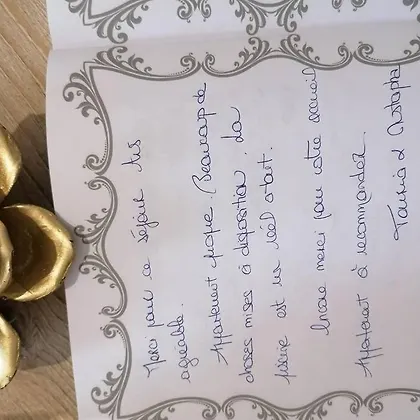 Merci pour ce séjour très
agréable.
Appartement unique. Beaucoup de
choses mises à disposition. La
piscine est un réel atout.
Encore merci pour votre accueil
Appartement à recommander.
Tania &